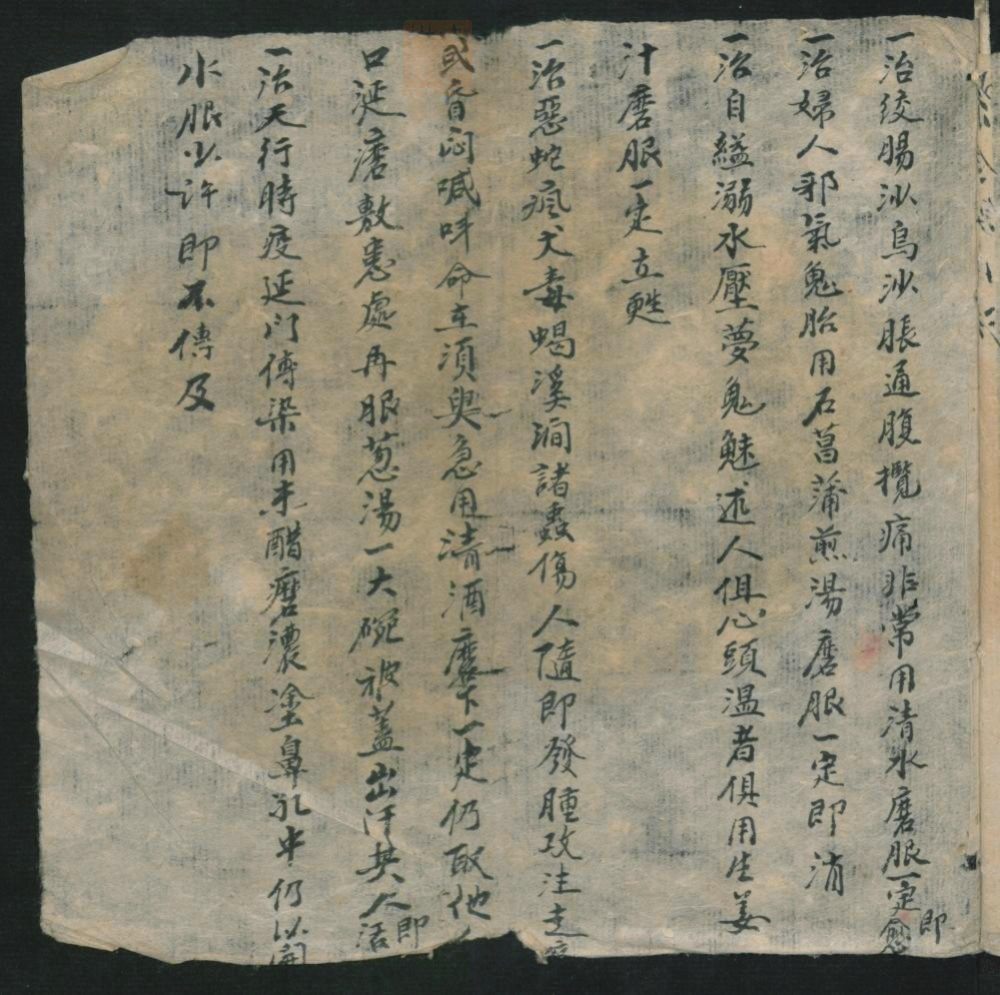 一治绞腸沙烏沙脹通腹攪痛非常用清水磨服一定即愈
一治婦人邪氣鬼胎用石菖蒲煎湯磨服一定即消
一治自縊溺水壓夢鬼魅迷人但心頭温者俱用生姜
汁磨服一定立甦
一治惡蛇瘋犬毒蝎溪澗諸蟲傷人隨即發腫攻注走
或昏悶喊呌命在須臾急用清酒磨下一定仍取他
口涎磨敷患處再服葱湯一大碗被蓋出汗其人即活
一治天行時疫延門傳染用末醋磨濃塗鼻孔中仍以
水服少許即不傳及